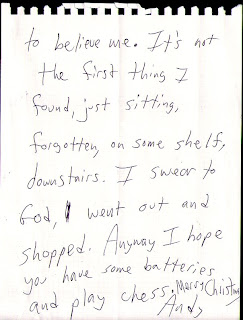 to believe me. It's not
the first thing I
found, just sitting,
forgotten, on some shelf,
downstairs. I swear to
God, I went out and
shopped. Anyway I hope
you have some batteries
and play chess. Merry Christmas
Andy